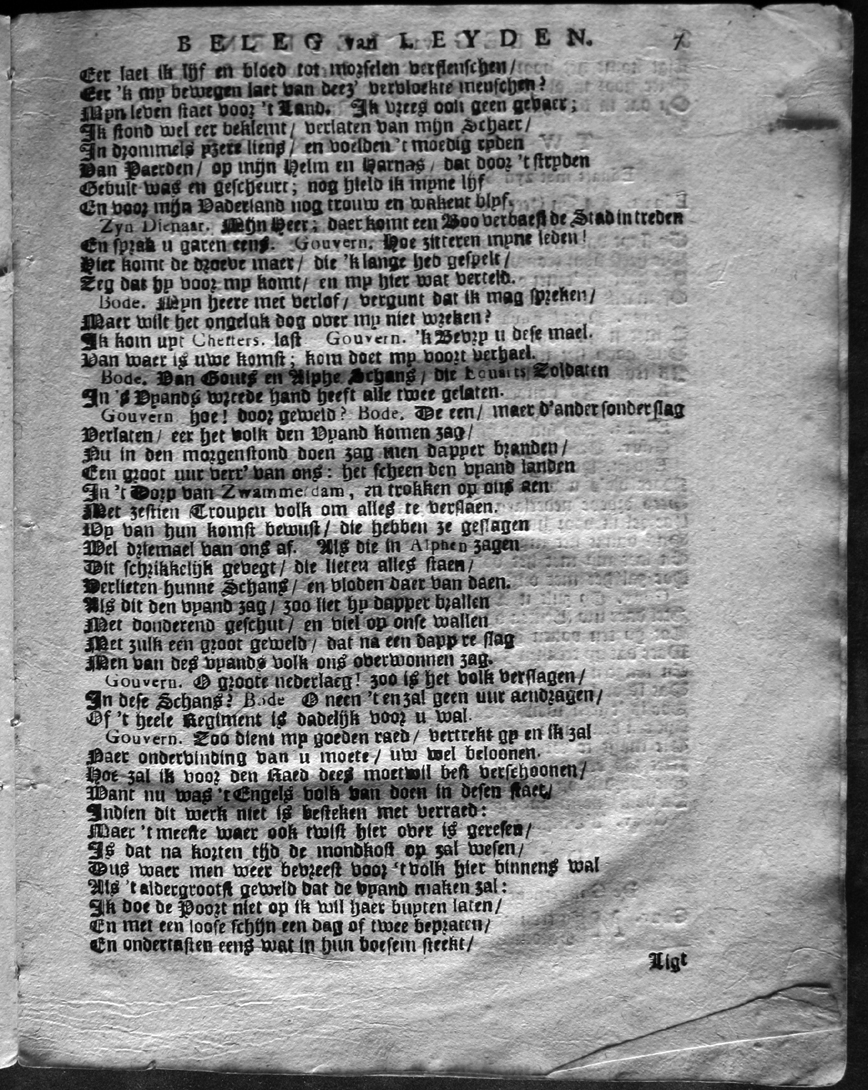 BELEG van LEYDEN. 7
Eer laet ik lijf en bloed tot morselen verslenschen/
Eer 'k my bewegen laet van deez' vervloekte menschen?
Myn leven staet voor 't Land. Ik vrees ook geen gevaer;
Ik stond wel eer beklemt/ verlaten van mijn Schaer/
In drommels yzere liens/ en voelden 't moedig ryden
Van Paerden/ op mijn Helm en Harnas/ dat door 't stryden
Gebult was en gescheurt; nog hield ik myne lijf
En voor mijn Vaderland nog trouw en wakent blyf.
Zyn Dienaar. Mijn Heer; daer komt een Boo verbaest de Stad in treden
En sprak u garen eens. Gouvern. Hoe zitteren myne leden!
Hier komt de droeve maer/ die 'k lange heb gespelt/
Zeg dat hy voor my komt/ en my hier wat verteld.
Bode. Myn heere met verlof/ vergunt dat ik mag spreken/
Maer wilt het ongeluk dog over my niet wreken?
Ik kom uyt Chetters. last Gouvern. 'k Bevry u dese mael.
Van waer is uwe komst; kom doet my voort verhael.
Bode. Van Gouts en Alphe Schans/ die Louaits Zoldaten
In 's Vyands wreede hand heeft alle twee gelaten.
Gouvern hoe! door geweld? Bode. De een/ maer d'ander sonder slag
Verlaten/ eer het volk den Vyand komen zag/
Nu in den morgenstond doen zag men dapper branden/
Een groot uur verr' van ons: het scheen den vyand landen
In 't Dorp van Zwammerdam, en trokken op ons aen
Met zestien Troupen volk om alles te verslaen.
Wy van hun komst bewust/ die hebben ze geslagen
Wel driemael van ons af. Als die in Alphen zagen
Dit schrikkelijk gevegt/ die lieten alles staen/
Verlieten hunne Schans/ en vloden daer van daen.
Als dit den vyand zag/ zoo liet hy dapper brallen
Met donderend geschut/ en viel op onse wallen
Met zulk een groot geweld/ dat na een dapp're slag
Men van des vyands volk ons overwonnen zag.
Gouvern. O groote nederlaeg! zoo is het volk verslagen/
In dese Schans? Bode O neen 't en zal geen uur aendragen/
Of 't heele Regiment is dadelijk voor u wal.
Gouvern. Zoo dient my goeden raed/ vertrekt gy en ik zal
Naer ondervinding van u moete/ uw wel beloonen.
Hoe zal ik voor den Raed dees moetwil best verschoonen/
Want nu was 't Engels volk van doen in desen staet/
Indien dit werk niet is besteken met verraed:
Maer 't meeste waer ook twist hier over is geresen/
Is dat na korten tijd de mondkost op zal wesen/
Dus waer men weer bevreest voor 't volk hier binnens wal
Als 't aldergrootst geweld dat de vyand maken zal:
Ik doe de Poort niet op ik wil haer buyten laten/
En met een loose schijn een dag of twee bepraten/
En ondertasten eens wat in hun boesem steekt/
Ligt